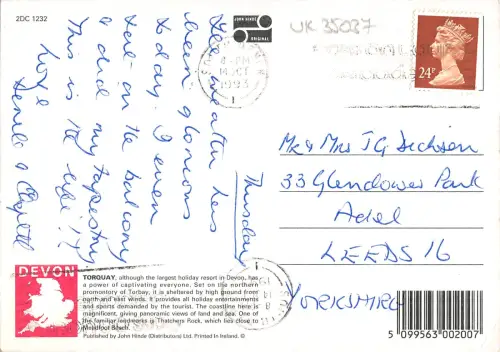 2DC 1232
JOHN HINDE
UK 35037
6-PM
14 OCT
1993
24P
Thursday
The weather has
been glorious
today. I even
sat on the balcony
& did my tapestry
This is the life!!
Love
Mr & Mrs JG Dickson
33 Glendower Park
Adel
LEEDS 16
YORKSHIRE
DEVON
TORQUAY, although the largest holiday resort in Devon, has
a power of captivating everyone. Set on the northern
promontory of Torbay, it is sheltered by high ground from
north and east winds. It provides all holiday entertainments
and sports demanded by the tourist. The coastline here is
magnificent, giving panoramic views of land and sea. One of
the familiar landmarks is Thatchers Rock, which lies close to
Meadfoot Beach.
Published by John Hinde (Distributors) Ltd. Printed in Ireland. ©
5099563002007